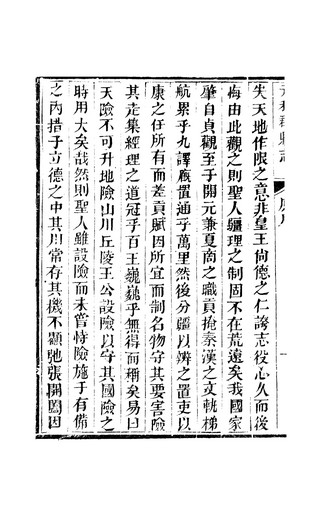 元和郡縣志
失天地作限之意非皇王尚德之仁誇志役心久而後
悔由此觀之則聖人疆理之制固不在荒遠矣我國家
肇自貞觀至于開元兼夏商之職貢掩秦漢之文軌梯
航累乎九譯廠置通乎萬里然後分疆以辨之置吏以
康之任所有而差貢賦因所宜而制名物守其要害險
其走集經理之道冠乎百王巍巍乎無得而稱矣易曰
天險不可升地險山川丘陵王公設險以守其國險之
時用大矣哉然則聖人雖設險而未嘗恃險施于有備
之內措于立德之中其用常存其機不顯弛張開闔因